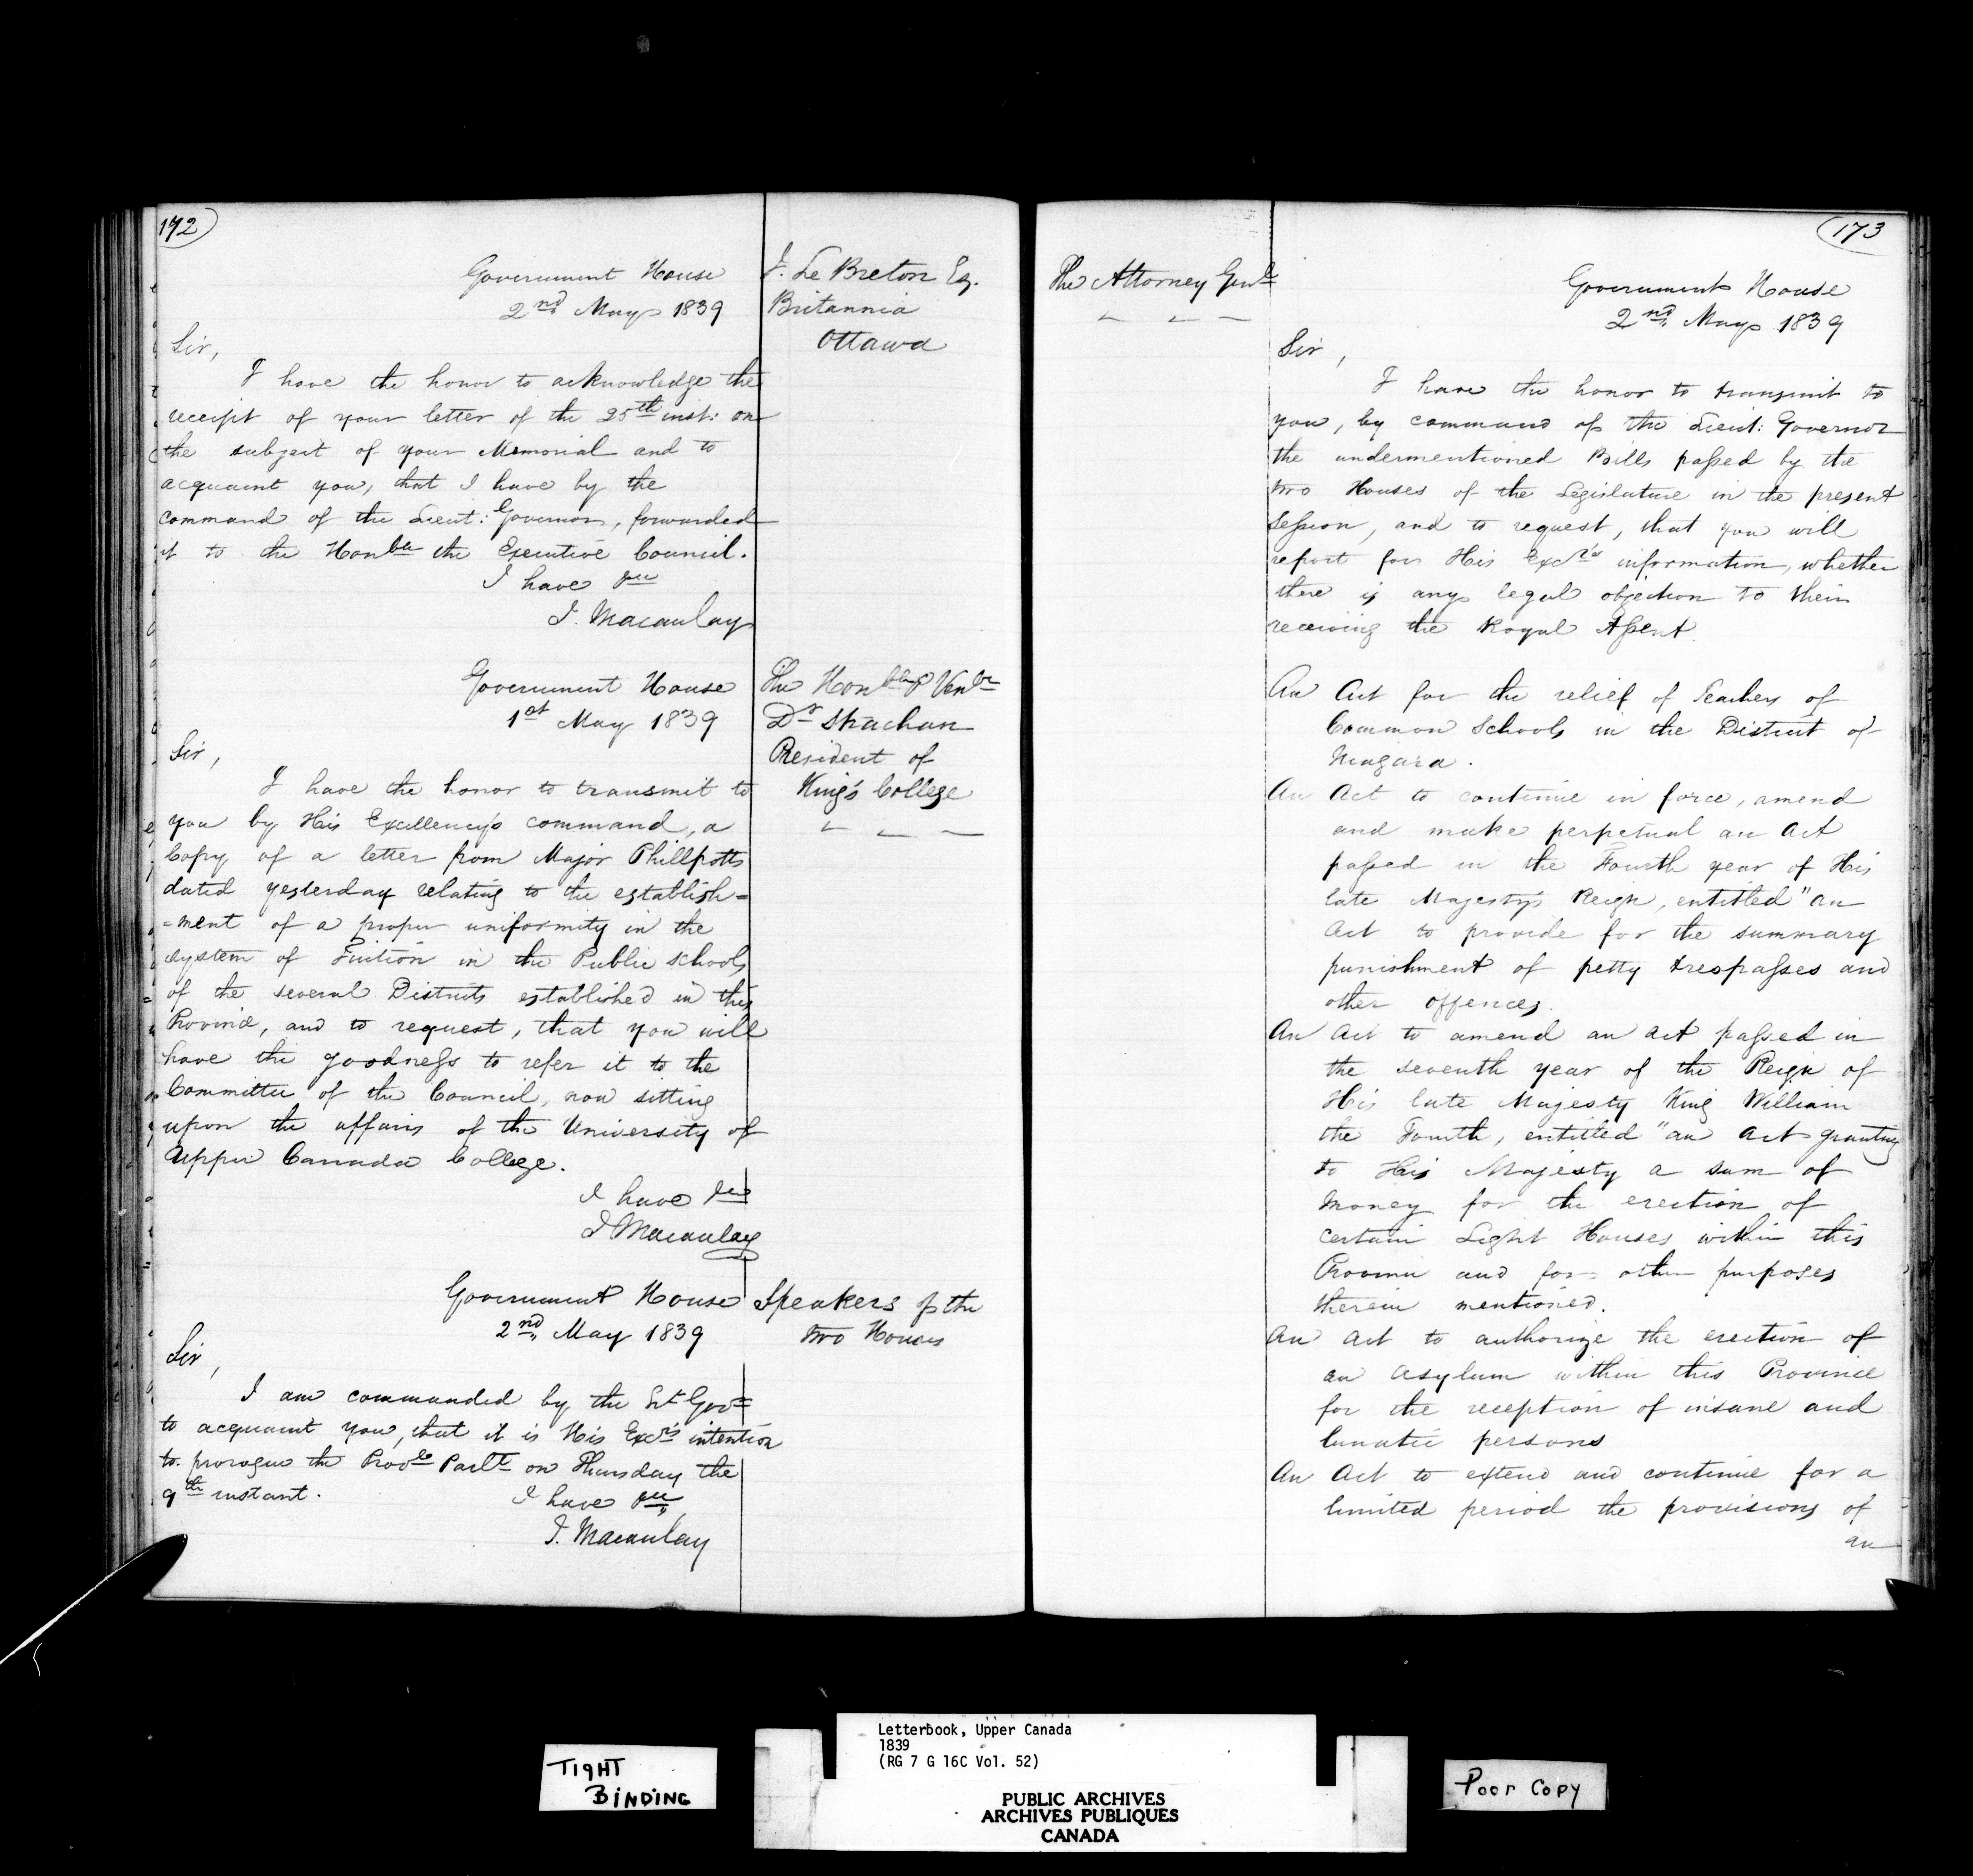 172
Government House
2nd May 1839
J. Le Breton Esq.
Britannia
Ottawa
Sir,
I have the honor to acknowledge the
receipt of your letter of the 25th inst: on
the subject of your Memorial and to
acquaint you, that I have by the
command of the Lieut: Governor, forwarded
it to the Honble the Executive Council.
I have &c
J. Macaulay
Government House
1st May 1839
The Honble & Venble
Dr Strachan
President of
King's College
Sir,
I have the honor to transmit to
you by His Excellency's command, a
Copy of a letter from Major Phillpotts
dated yesterday relating to the establish=
=ment of a proper uniformity in the
system of Tuition in the Public schools
of the several Districts established in this
Province, and to request, that you will
have the goodness to refer it to the
Committee of the Council, now sitting
upon the affairs of the University of
Upper Canada College.
I have &c
J Macaulay
Government House
2nd May 1839
Speakers of the
two Houses
Sir,
I am commanded by the Lt Govr
to acquaint you, that it is His Excy's intention
to prorogue the Provle Parlt on Thursday the
9th instant.
I have &c
J. Macaulay
173
The Attorney Genl
Government House
2nd May 1839
Sir,
I have the honor to transmit to
you, by command of the Lieut: Governor
the undermentioned Bills passed by the
two Houses of the Legislature in the present
Session, and to request, that you will
report for His Excy's information, whether
there is any legal objection to their
receiving the Royal Assent.
An Act for the relief of Teachers of
Common Schools in the District of
Niagara.
An Act to continue in force, amend
and make perpetual an Act
passed in the Fourth year of His
late Majesty's Reign, entitled "an
Act to provide for the summary
punishment of petty trespasses and
other offences.
An Act to amend an act passed in
the seventh year of the Reign of
His late Majesty King William
the Fourth, entitled "an Act granting
to His Majesty a sum of
Money for the erection of
certain Light Houses within this
Province and for other purposes
therein mentioned.
An Act to authorize the erection of
an Asylum within this Province
for the reception of insane and
lunatic persons
An Act to extend and continue for a
limited period the provisions of
an
TIGHT
BINDING
Letterbook, Upper Canada
1839
(RG 7 G 16C Vol. 52)
PUBLIC ARCHIVES
ARCHIVES PUBLIQUES
CANADA
Poor Copy